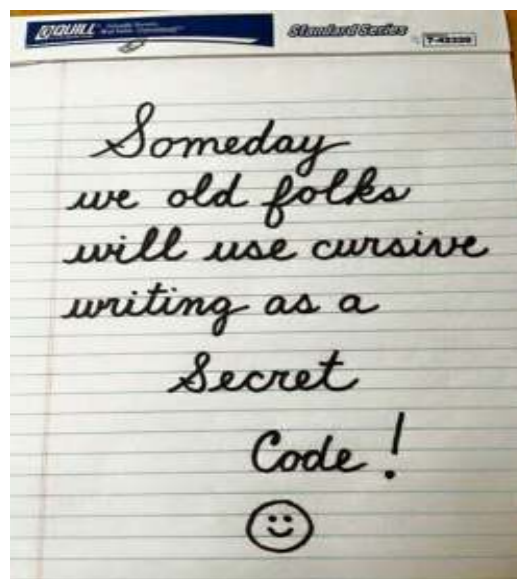 QUILL Standard Series
7-42320
Someday
we old folks
will use cursive
writing as a
Secret
Code!